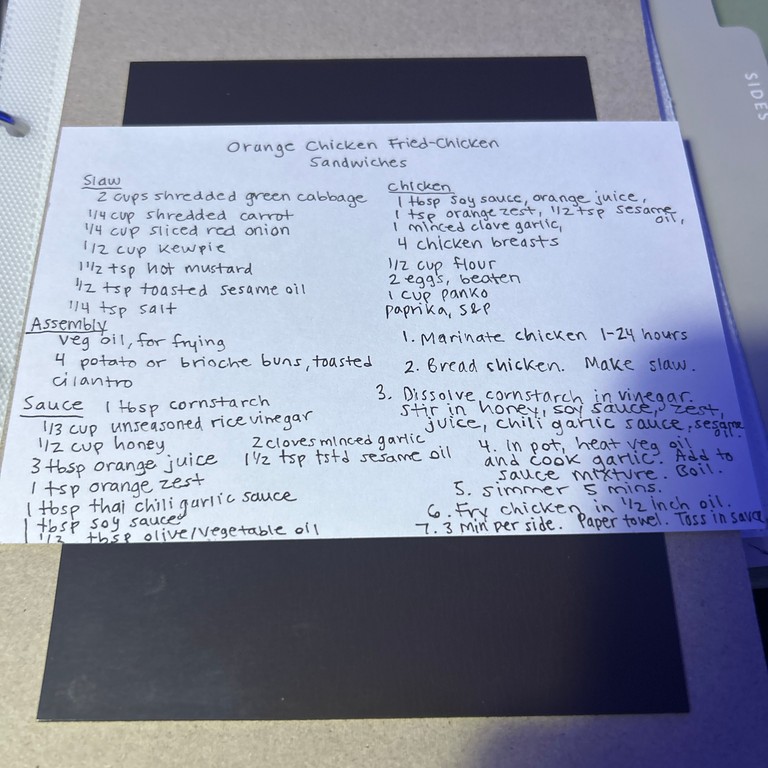 SIDES
Orange Chicken Fried-Chicken
Sandwiches
Slaw
2 cups shredded green cabbage
1/4 cup shredded carrot
1/4 cup sliced red onion
1/2 cup kewpie
1 1/2 tsp hot mustard
1/2 tsp toasted sesame oil
1/4 tsp salt
Assembly
veg oil, for frying
4 potato or brioche buns, toasted
cilantro
Sauce 1 tbsp cornstarch
1/3 cup unseasoned rice vinegar
1/2 cup honey
2 cloves minced garlic
3 tbsp orange juice
1 1/2 tsp tstd sesame oil
1 tsp orange zest
1 tbsp thai chili garlic sauce
1 tbsp soy sauce
1/2 tbsp olive/vegetable oil
Chicken
1 tbsp soy sauce, orange juice,
1 tsp orange zest, 1/2 tsp sesame oil,
1 minced clove garlic,
4 chicken breasts
1/2 cup flour
2 eggs, beaten
1 cup panko
paprika, S&P
1. Marinate chicken 1-24 hours
2. Bread chicken. Make slaw.
3. Dissolve cornstarch in vinegar.
stir in honey, soy sauce, zest,
juice, chili garlic sauce, sesame
4. In pot, heat veg oil
and cook garlic. Add to
sauce mixture. Boil.
5. simmer 5 mins.
6. Fry chicken in 1/2 inch oil.
7. 3 min per side. Paper towel. Toss in sauce